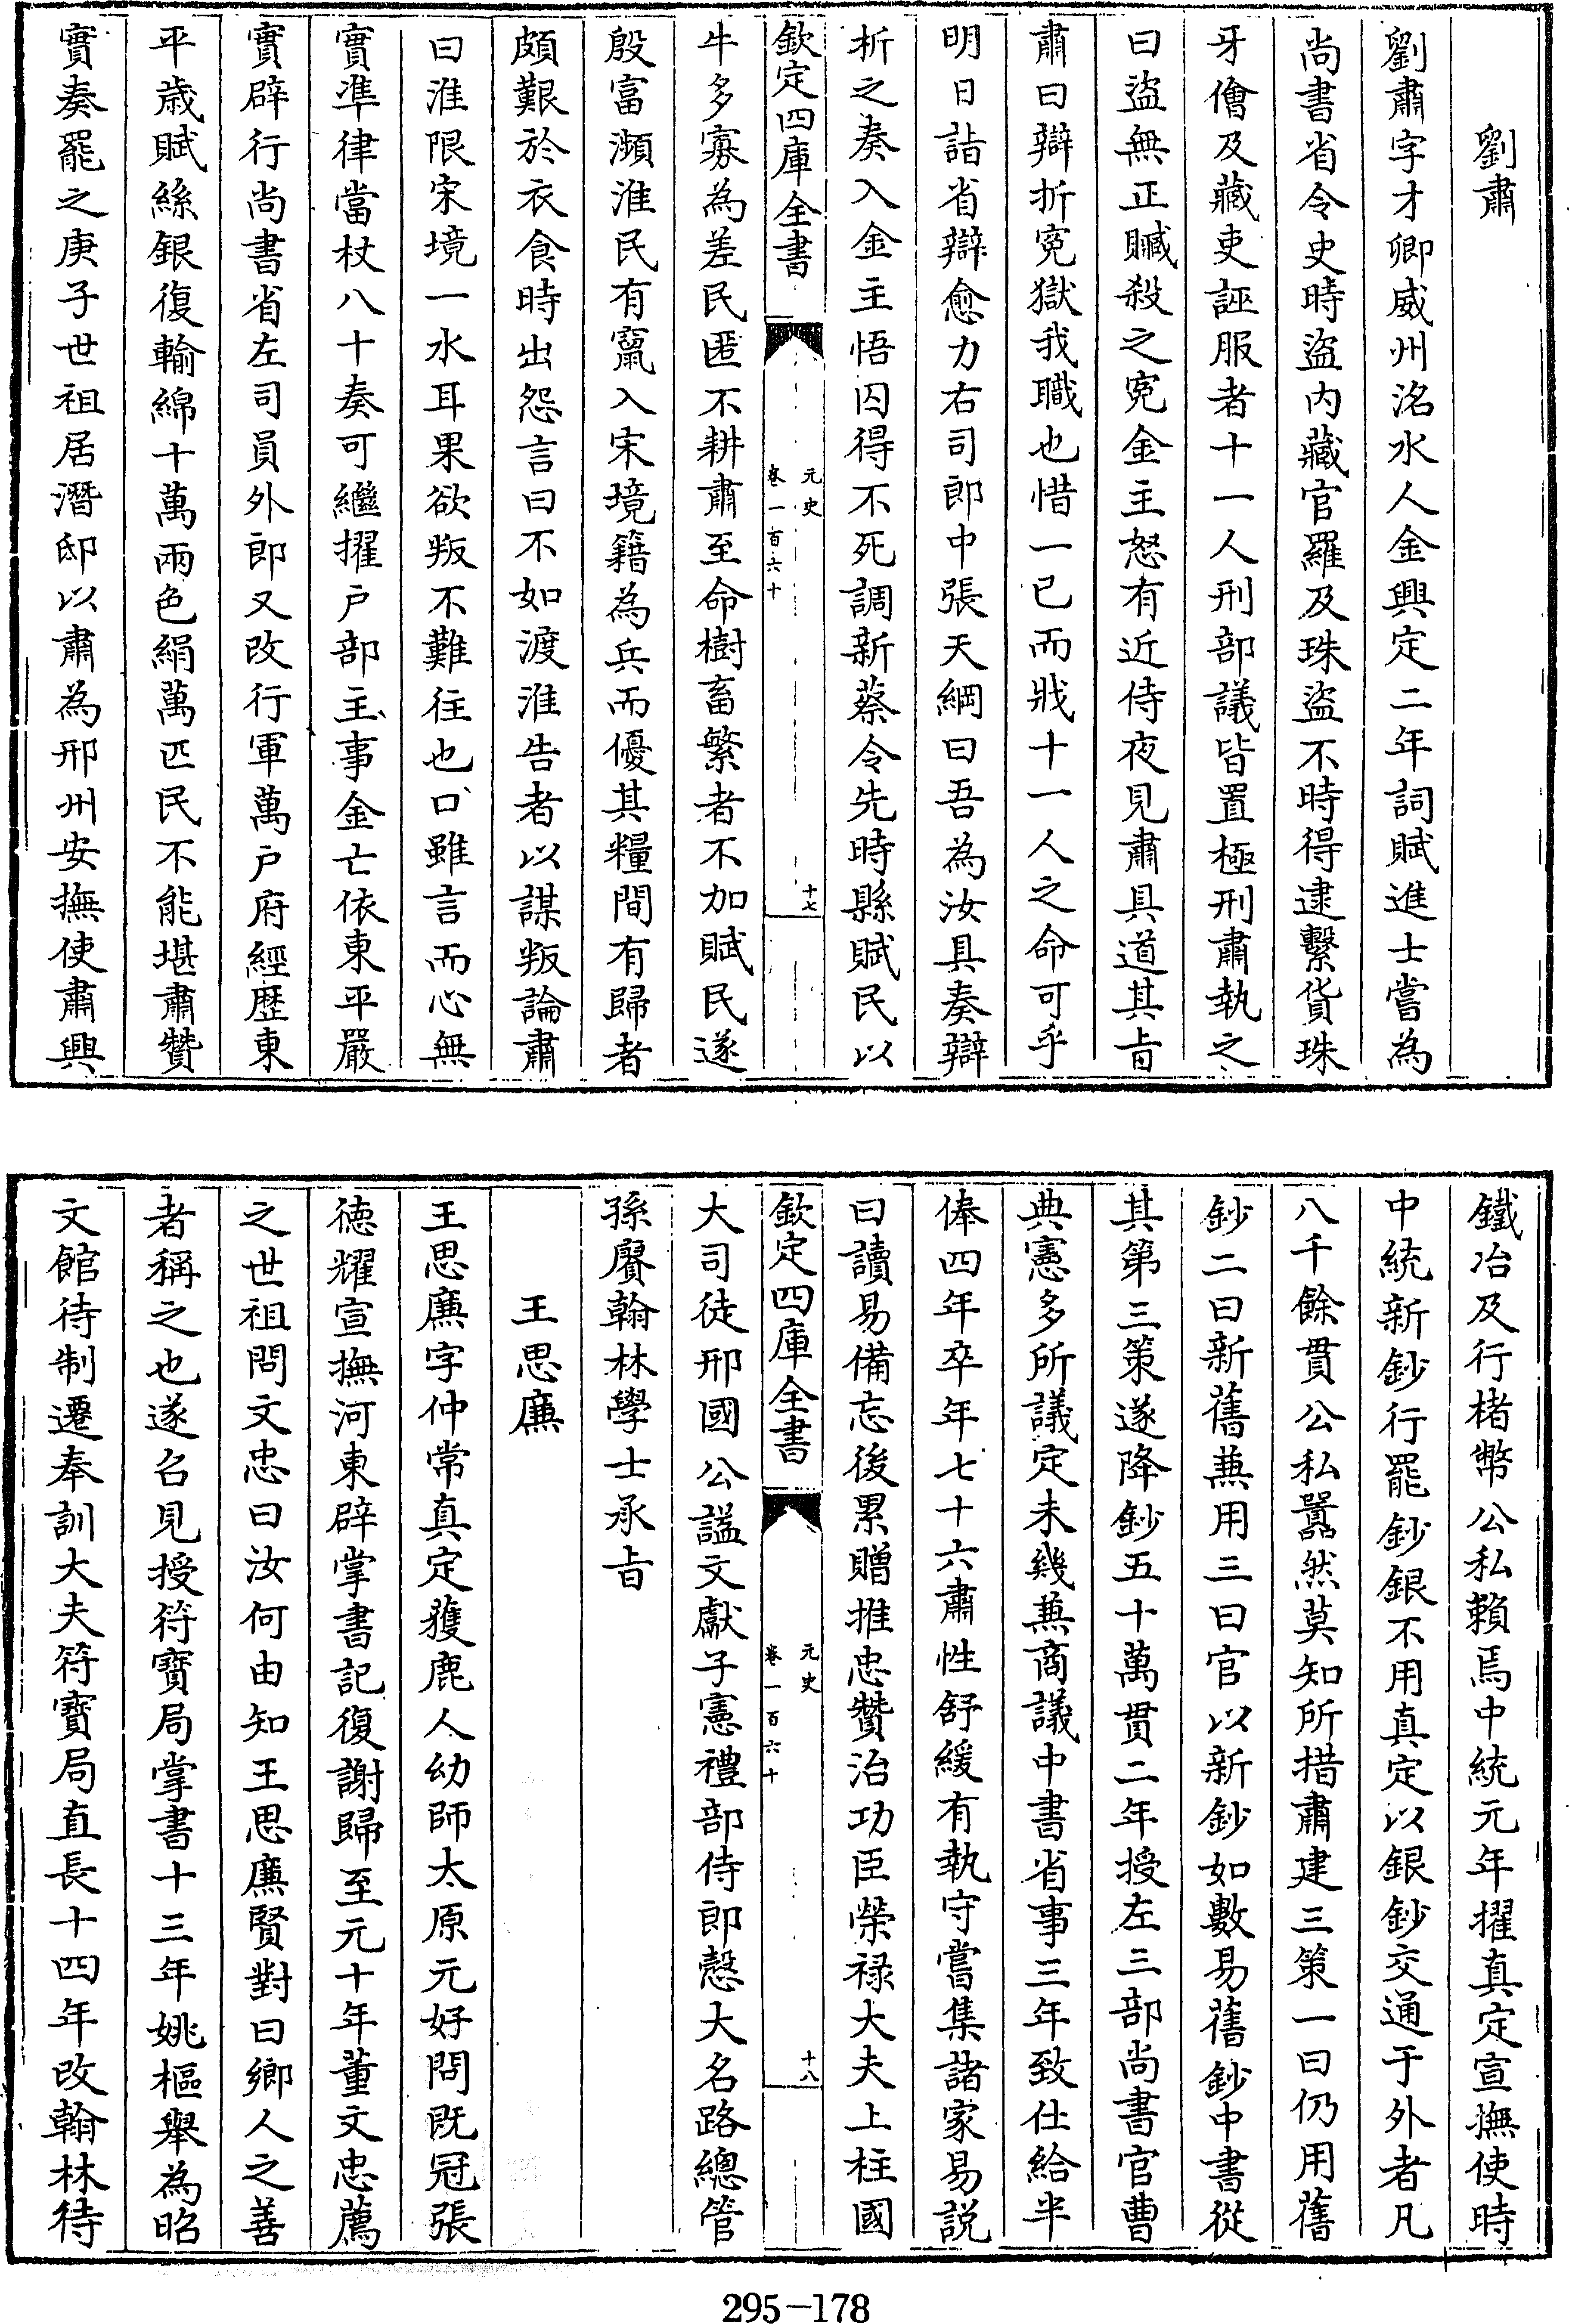 劉肅
劉肅字才卿威州洺水人金興定二年詞賦進士嘗為
尚書省令史時盜內藏官羅及珠盜不時得逮繫貨珠
牙儈及藏吏誣服者十一人刑部議皆置極刑肅執之
曰盜無正贓殺之冤金主怒有近侍夜見肅具道其㫖
肅曰辯折冤獄我職也惜一已而戕十一人之命可乎
明日詣省辯愈力右司郎中張天綱曰吾為汝具奏辯
析之奏入金主悟囚得不死調新蔡令先時縣賦民以
欽定四庫全書
元史
卷一百六十
十七
牛多寡為差民匿不耕肅至命樹畜繁者不加賦民遂
殷富瀕淮民有竄入宋境籍為兵而優其糧間有歸者
頗艱於衣食時出怨言曰不如渡淮告者以謀叛論肅
曰淮限宋境一水耳果欲叛不難往也口雖言而心無
實準律當杖八十奏可繼擢户部主事金亡依東平嚴
實辟行尚書省左司員外郎又改行軍萬户府經歷東
平歲賦絲銀復輸綿十萬兩色絹萬匹民不能堪肅贊
實奏罷之庚子世祖居潛邸以肅為邢州安撫使肅興
鐵冶及行楮幣公私賴焉中統元年擢真定宣撫使時
中統新鈔行罷鈔銀不用真定以銀鈔交通于外者凡
八千餘貫公私囂然莫知所措肅建三策一曰仍用舊
鈔二曰新舊兼用三曰官以新鈔如數易舊鈔中書從
其第三策遂降鈔五十萬貫二年授左三部尚書官曹
典憲多所議定未幾兼商議中書省事三年致仕給半
俸四年卒年七十六肅性舒緩有執守嘗集諸家易説
曰讀易備忘後累贈推忠贊治功臣榮禄大夫上柱國
欽定四庫全書
元史
卷一百六十
十八
大司徒邢國公諡文獻子憲禮部侍郎愨大名路總管
孫賡翰林學士承㫖
王思廉
王思廉字仲常真定獲鹿人幼師太原元好問既冠張
德耀宣撫河東辟掌書記復謝歸至元十年董文忠薦
之世祖問文忠曰汝何由知王思廉賢對曰鄉人之善
者稱之也遂召見授符寶局掌書十三年姚樞舉為昭
文館待制遷奉訓大夫符寶局直長十四年改翰林待
295-178